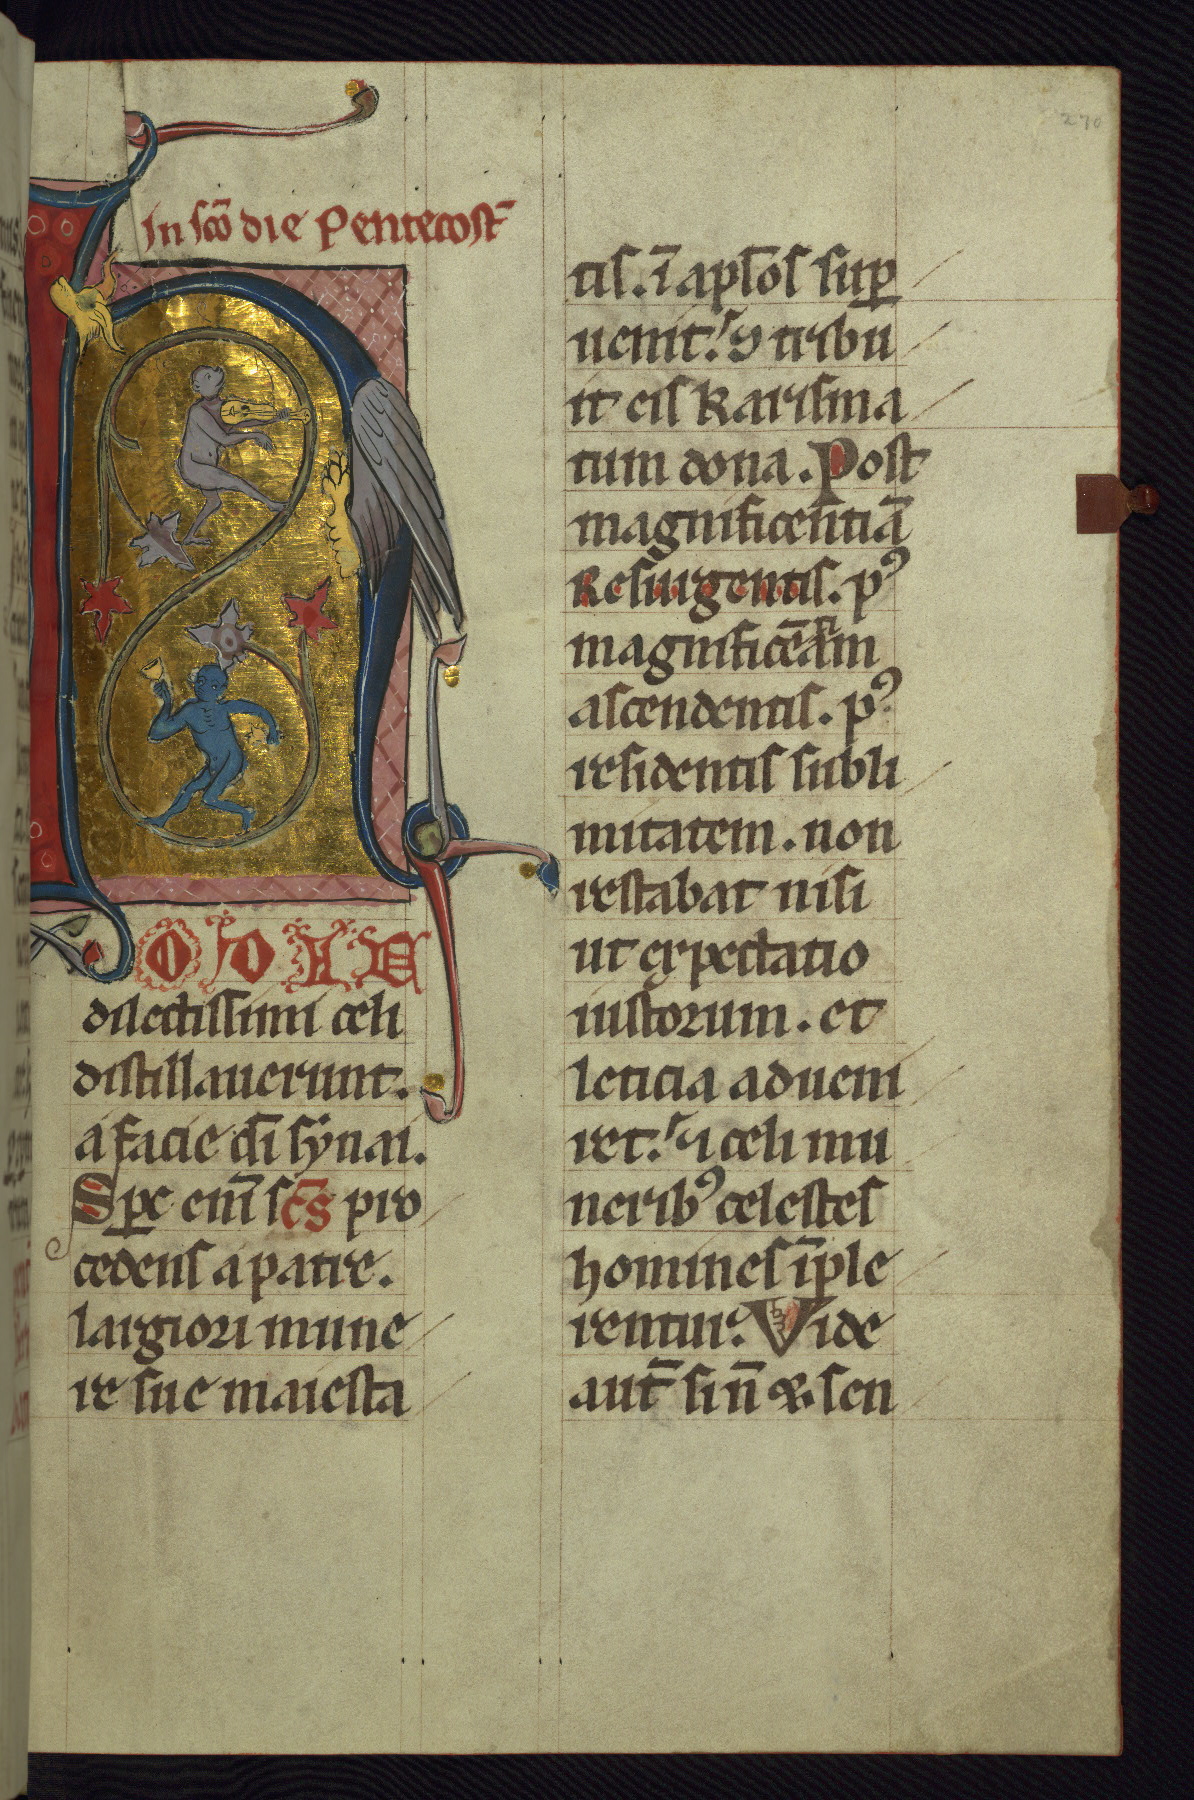 270
In sc̄o die Pentecost̄
HODIE
dilectissimi celi
distillauerunt.
a facie d̄i sẏnai.
Sp̄c eni̅ sc̄s pro
cedens a patre.
largiori mune
re sue maiesta
tis. ī ap̄los suꝑ
uenit: ⁊ tribu
it eis karisma
tum dona. Post
magnificentiā
Resurgentis. pꝰ
magnificēam
ascendentis. pꝰ
residentis subli
mitatem. non
restabat nisi
ut exspectatio
iustorum. et
leticia adueni
ret: ⁊ celi mu
neribꝰ celestes
homines īple
rentur. Vide
aut̄ si n̄ & sen